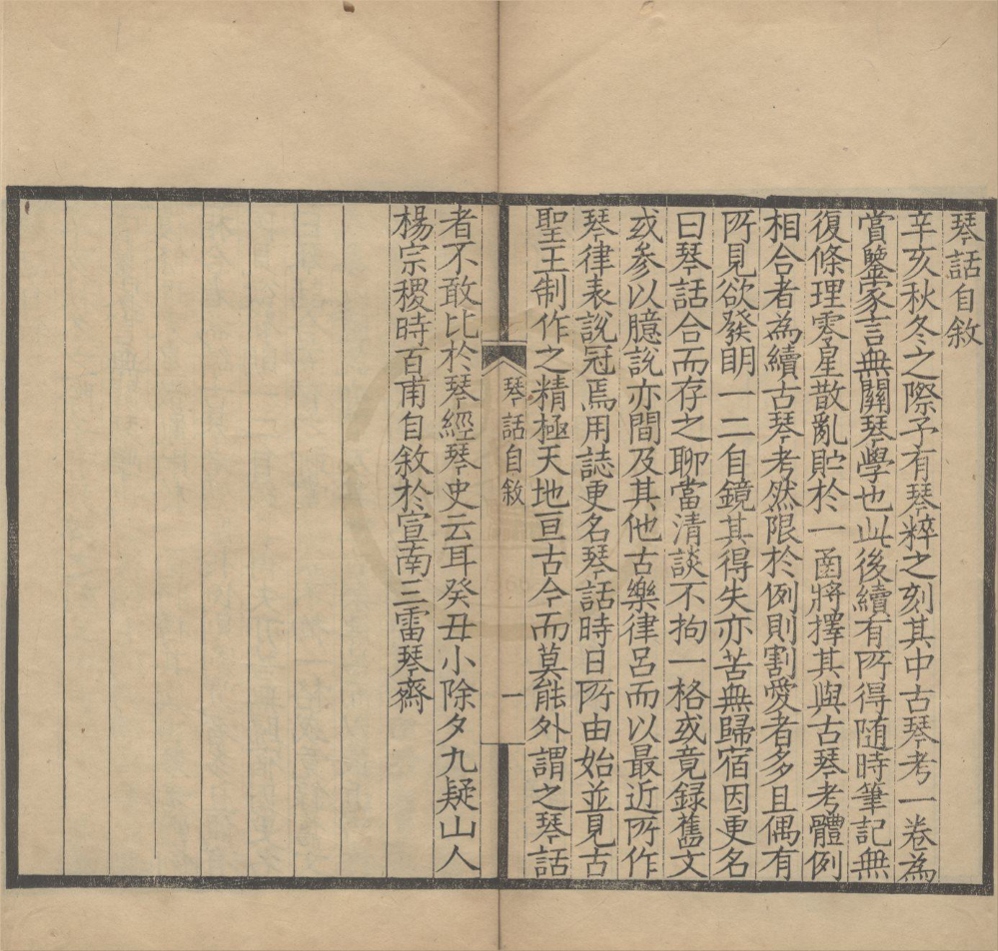 琴話自敘
辛亥秋冬之際予有琴粹之刻其中古琴考一卷為
賞鑒家言無關琴學也此後續有所得随時筆記無
復條理零星散亂貯於一函將擇其與古琴考體例
相合者為續古琴考然限於例則割愛者多且偶有
所見欲發明一二自鏡其得失亦苦無歸宿因更名
曰琴話合而存之聊當清談不拘一格或竟録舊文
或參以臆說亦間及其他古樂律呂而以最近所作
琴律表說冠焉用誌更名琴話時日所由始並見古
聖王制作之精極天地亘古今而莫能外謂之琴話
琴話自敘
一
者不敢比於琴經琴史云耳癸丑小除夕九疑山人
楊宗稷時百甫自敘於宣南三雷琴齋